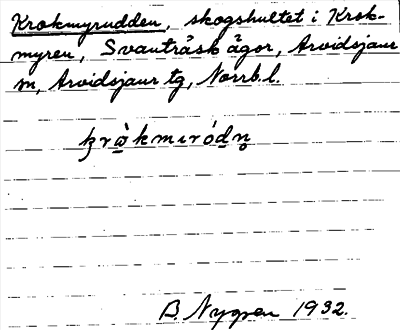 Krokmyrudden, skogshultet i Krok-
myren, Svanträsk ägor, Arvidsjaur
sn, Arvidsjaur tg, Norrb. l.
ꞣrὼkmıródn̥
B. Nygren 1932.